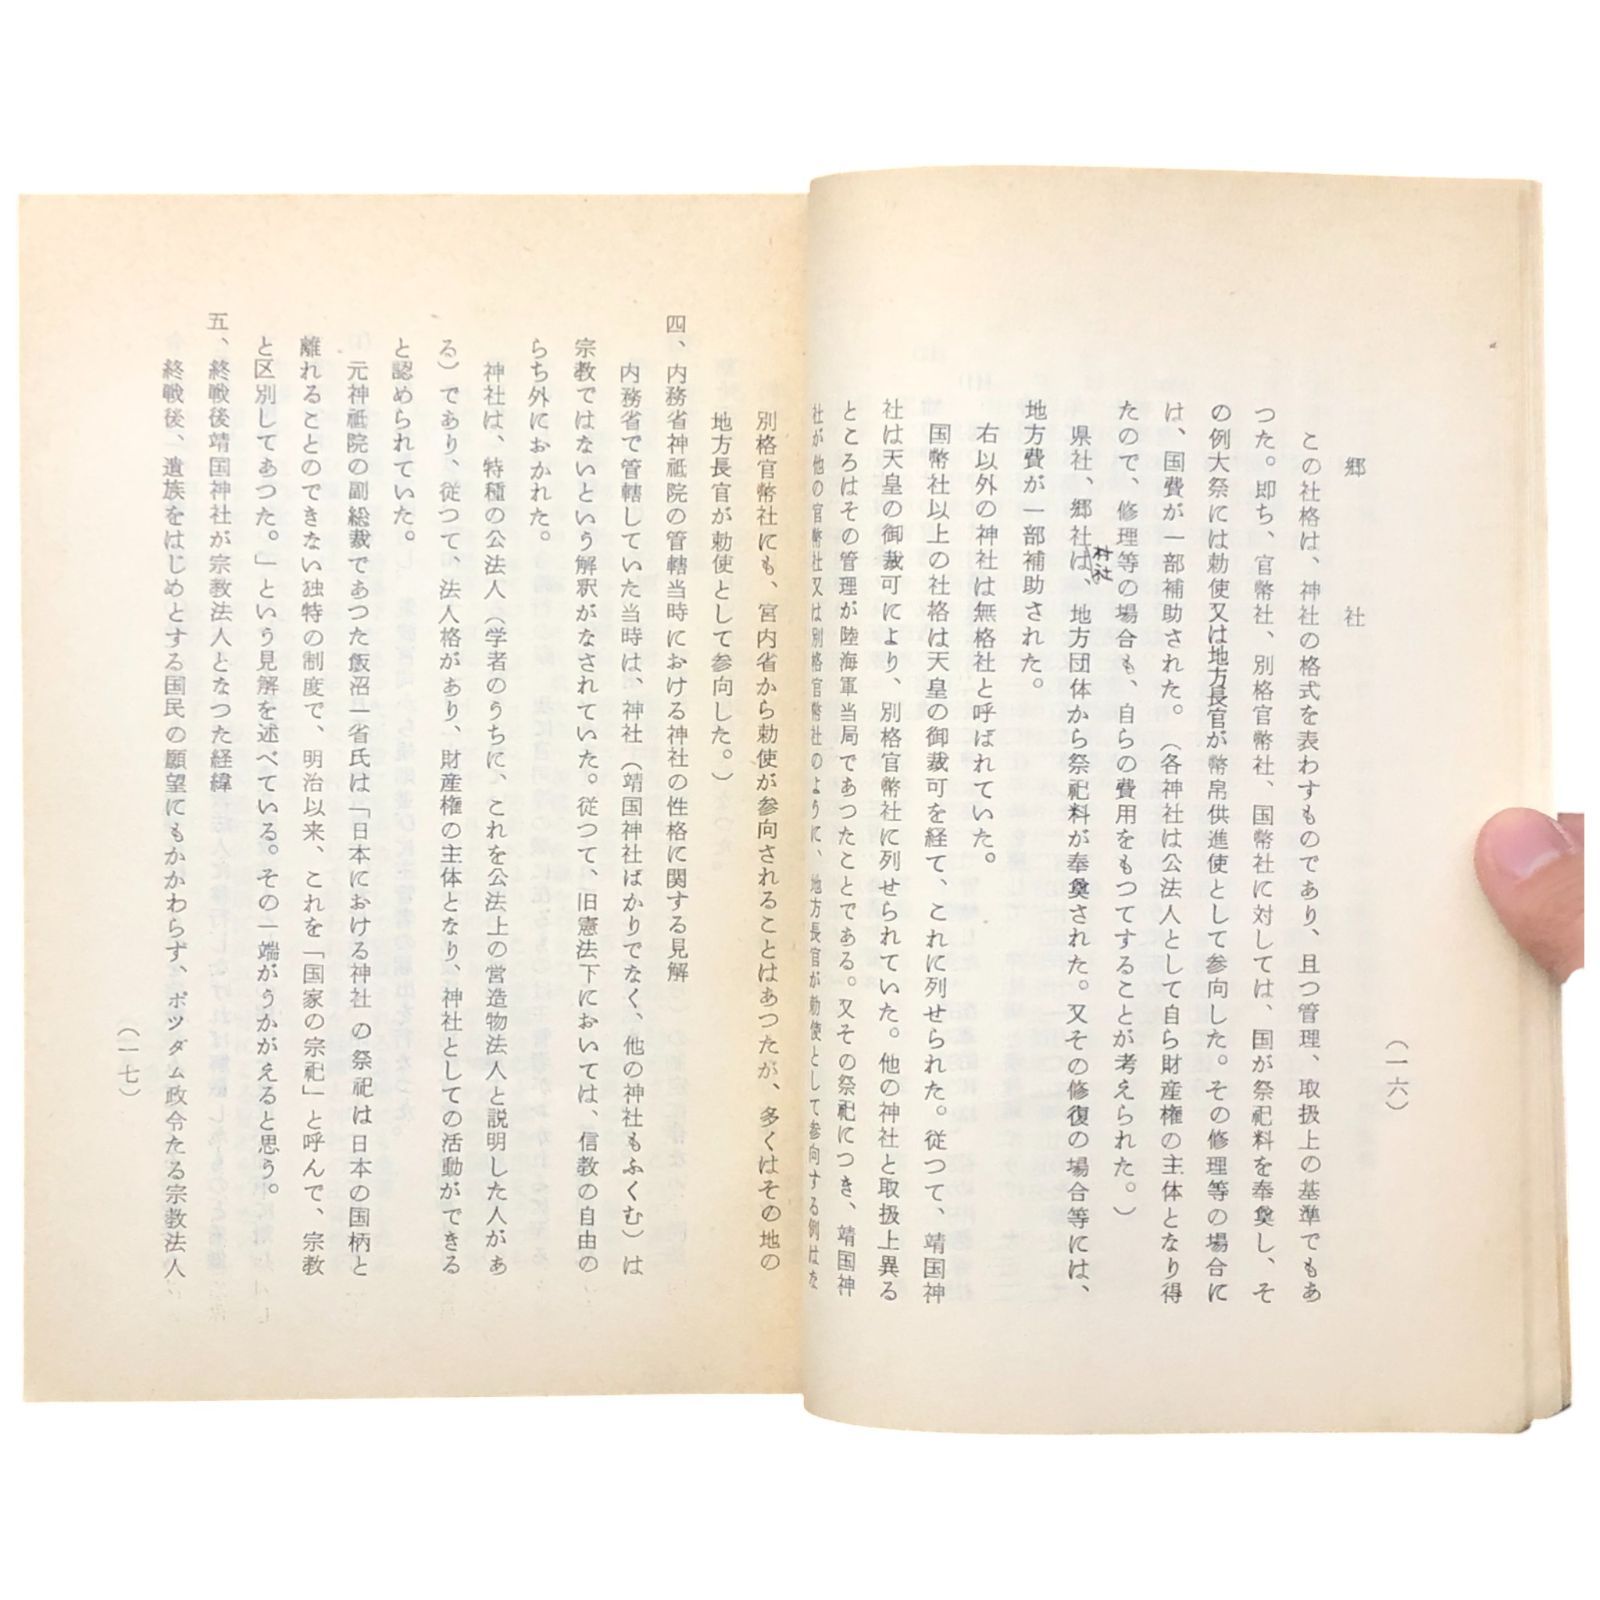 郷社
この社格は、神社の格式を表わすものであり、且つ管理、取扱上の基準でもあ
つた。即ち、官幣社、別格官幣社、国幣社に対しては、国が祭祀料を奉奠し、そ
の例大祭には勅使又は地方長官が幣帛供進使として参向した。その修理等の場合に
は、国費が一部補助された。(各神社は公法人として自ら財産権の主体となり得
たので、修理等の場合も、自らの費用をもつてすることが考えられた。)
県社、郷社村社は、地方団体から祭祀料が奉奠された。又その修復の場合等には、
地方費が一部補助された。
右以外の神社は無格社と呼ばれていた。
国幣社以上の社格は天皇の御裁可を経て、これに列せられた。従つて、靖国神
社は天皇の御裁可により、別格官幣社に列せられていた。他の神社と取扱上異る
ところはその管理が陸海軍当局であつたことである。又その祭祀につき、靖国神
社が他の官幣社又は別格官幣社のように、地方長官が勅使として参向する例はな
(一六)
別格官幣社にも、宮内省から勅使が参向されることはあつたが、多くはその地の
地方長官が勅使として参向した。)
四、内務省神祇院の管轄当時における神社の性格に関する見解
内務省で管轄していた当時は、神社(靖国神社ばかりでなく、他の神社もふくむ)は
宗教ではないという解釈がなされていた。従つて、旧憲法下においては、信教の自由の
らち外におかれた。
神社は、特種の公法人(学者のうちに、これを公法上の営造物法人と説明した人があ
る)であり、従つて、法人格があり、財産権の主体となり、神社としての活動ができる
と認められていた。
元神祇院の副総裁であつた飯沼一省氏は「日本における神社の祭祀は日本の国柄と
離れることのできない独特の制度で、明治以来、これを「国家の宗祀」と呼んで、宗教
と区別してあつた。」という見解を述べている。その一端がうかがえると思う。
五、終戦後靖国神社が宗教法人となつた経緯
終戦後、遺族をはじめとする国民の願望にもかかわらず、ポツダム政令たる宗教法人
(一七)